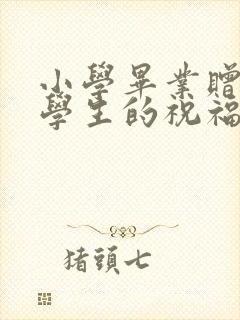 小學畢業贈
學生的祝福
猪頭七